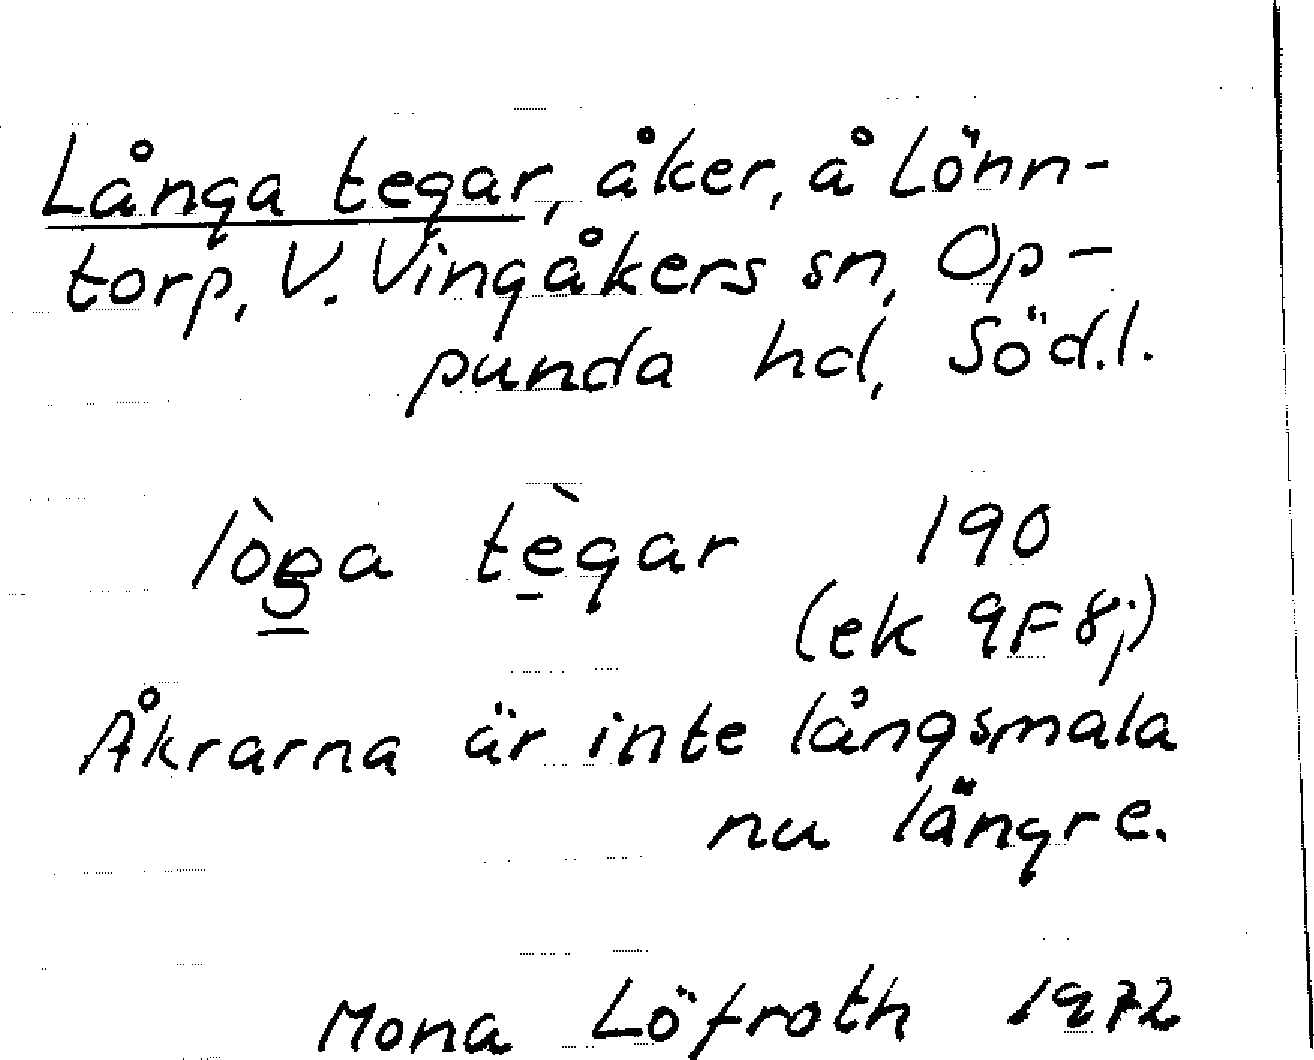 Långa tegar, åker, å Lönn-
torp, V. Vingåkers sn, Op-
punda hd, Söd.l.
tègar 190
(ek 9F8j)
Åkrarna är inte långsmala
nu längre.
Mona Löfroth 1972